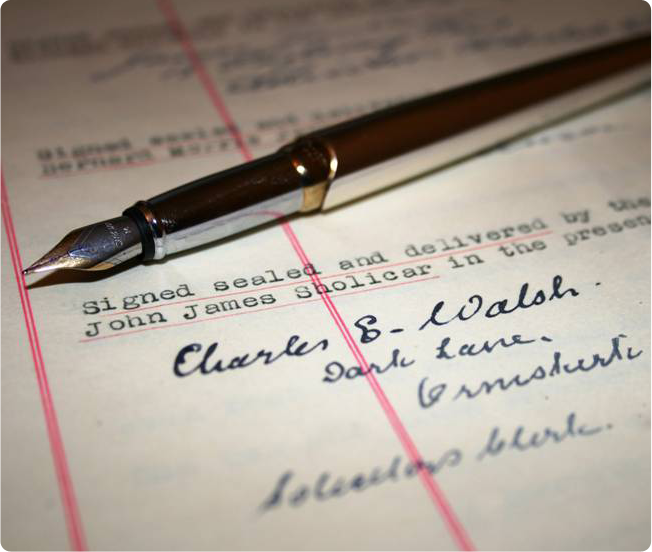 Signed sealed and
Bernard Morris
Signed sealed and delivered by the
John James Sholicar in the presen
Charles E. Walsh.
Dark Lane.
Ormskirk
Solicitors Clerk.